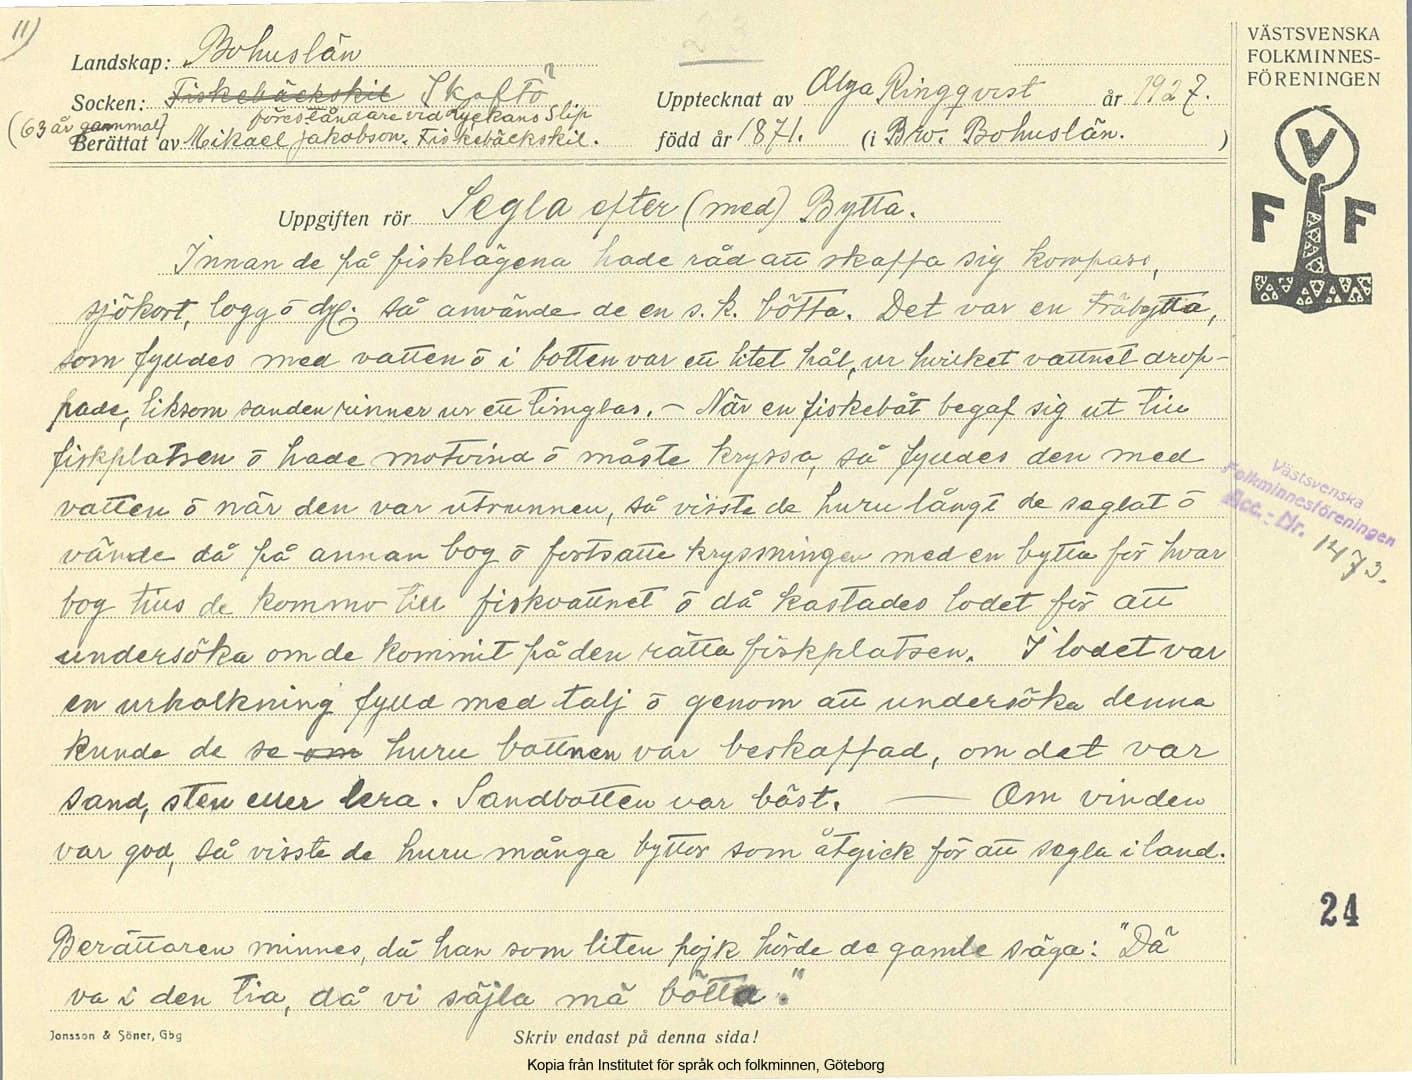 11)
Landskap: Bohuslän
Socken: Fiskebäckskil Skaftö?
föreståndare vid Lyckans Slip
(63 år gammal)
Berättat av Mikael Jakobson. Fiskebäckskil.
Upptecknat av Olga Ringqvist år 1927.
född år 1871. (i Bro. Bohuslän. )
VÄSTSVENSKA
FOLKMINNES-
FÖRENINGEN
V
F F
Uppgiften rör Segla efter (med) Bytta.
Innan de på fisklägena hade råd att skaffa sig kompass,
sjökort, logg ō dyl. så använde de en s.k. bötta. Det var en träbytta,
som fylldes med vatten ō i botten var ett litet hål, ur hvilket vattnet drop-
pade, liksom sanden rinner ur ett timglas. – När en fiskebåt begaf sig ut till
fiskplatsen ō hade motvind ō måste kryssa, så fylldes den med
vatten ō när den var utrunnen, så visste de huru långt de seglat ō
vände då på annan bog ō fortsatte kryssningen med en bytta för hvar
bog tills de kommo till fiskvattnet ō då kastades lodet för att
undersöka om de kommit på den rätta fiskplatsen. I lodet var
en urholkning fylld med talj ō genom att undersöka denna
kunde de se om huru bottnen var beskaffad, om det var
sand, sten eller lera. Sandbotten var bäst. — Om vinden
var god, så visste de huru många byttor som åtgick för att segla i land.
Berättaren minnes, då han som liten pojk hörde de gamle säga: "Dä
va i den tia, då vi säjla mä bötta."
Västsvenska
Folkminnesföreningen
Acc.-Nr. 1473.
24
Jonsson & Söner, Gbg
Skriv endast på denna sida!
Kopia från Institutet för språk och folkminnen, Göteborg